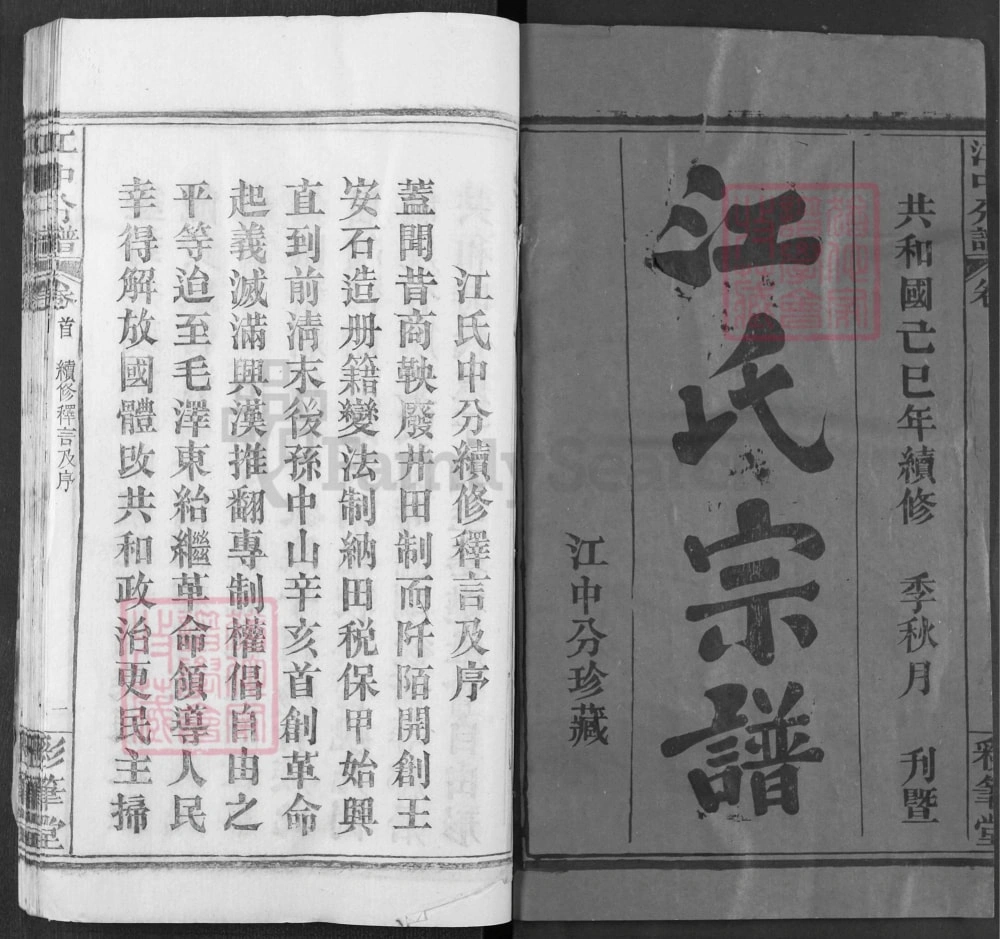 共和國己巳年續修 季秋月 刊暨
江氏宗譜
江中分珍藏
彩筆堂
江氏中分續修釋言及序
蓋聞昔商鞅廢井田制而阡陌開創王
安石造册籍變法制納田税保甲始興
直到前淸末後孫中山辛亥首創革命
起義滅滿興漢推翻專制權倡自由之
平等迨至毛澤東紿繼革命領導人民
幸得解放國體改共和政治更民主掃
江中分譜 卷首 續修釋言及序 一 彩筆堂
FamilySearch